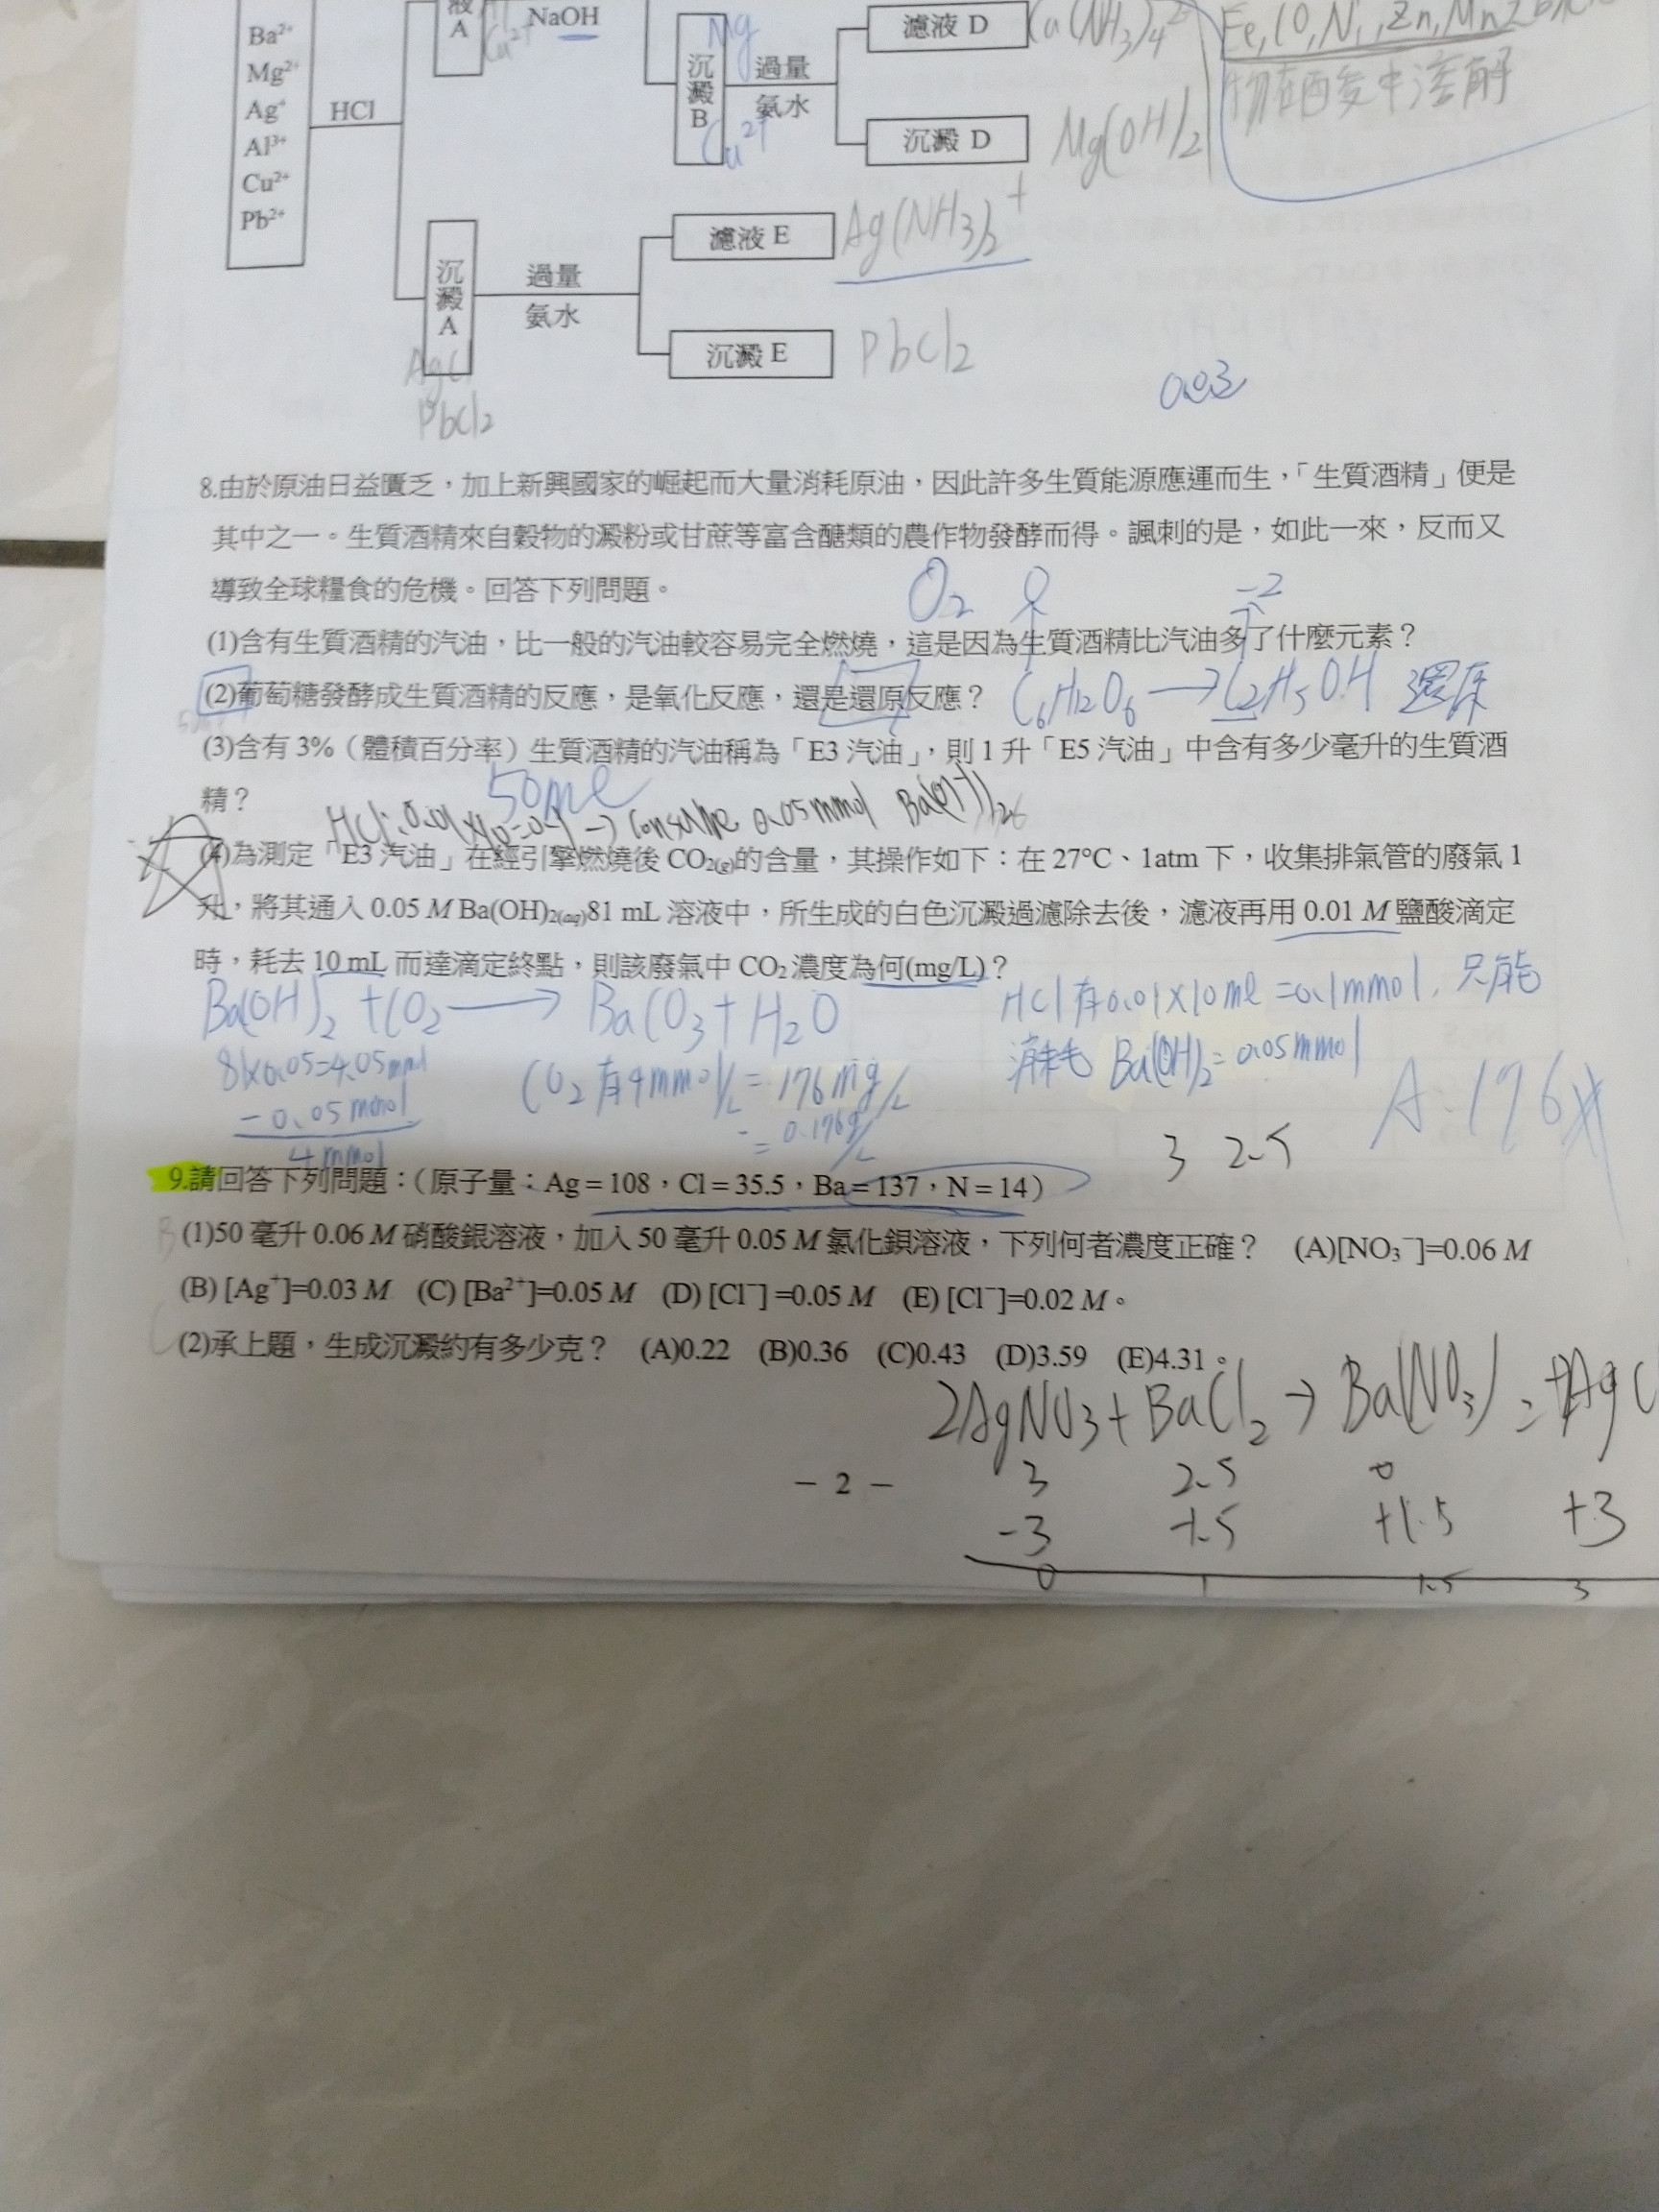 液
A
NaOH
Ba²⁺
Mg²⁺
Ag⁺
Al³⁺
Cu²⁺
Pb²⁺
HCl
Cu²⁺
Mg
沉
澱
B
Cu²⁺
過量
氨水
濾液 D
沉澱 D
Mg(OH)₂
物在酸中溶解
沉
澱
A
AgCl
PbCl₂
過量
氨水
濾液 E
Ag(NH₃)₂⁺
沉澱 E
PbCl₂
0.03
8.由於原油日益匱乏，加上新興國家的崛起而大量消耗原油，因此許多生質能源應運而生，「生質酒精」便是
其中之一。生質酒精來自穀物的澱粉或甘蔗等富含醣類的農作物發酵而得。諷刺的是，如此一來，反而又
導致全球糧食的危機。回答下列問題。
O₂
-2
(1)含有生質酒精的汽油，比一般的汽油較容易完全燃燒，這是因為生質酒精比汽油多了什麼元素？
(2)葡萄糖發酵成生質酒精的反應，是氧化反應，還是還原反應？ C₆H₁₂O₆ → C₂H₅OH 還原
(3)含有 3%（體積百分率）生質酒精的汽油稱為「E3 汽油」，則 1 升「E5 汽油」中含有多少毫升的生質酒
精？
50ml
HCl: 0.01×10=0.1 → consume 0.05mmol Ba(OH)₂
(4)為測定「E3 汽油」在經引擎燃燒後 CO₂(g)的含量，其操作如下：在 27°C、1atm 下，收集排氣管的廢氣 1
升，將其通入 0.05 M Ba(OH)₂(aq)81 mL 溶液中，所生成的白色沉澱過濾除去後，濾液再用 0.01 M 鹽酸滴定
時，耗去 10 mL 而達滴定終點，則該廢氣中 CO₂ 濃度為何(mg/L)？
Ba(OH)₂ + CO₂ → BaCO₃ + H₂O
81×0.05=4.05mmol
-0.05 mmol
4 mmol
CO₂ 有4mmol/L = 176 mg/L
= 0.176g/L
HCl 有0.01×10ml=0.1mmol，只能
消耗 Ba(OH)₂=0.05mmol
A:176
3 2.5
9.請回答下列問題：（原子量：Ag＝108，Cl＝35.5，Ba＝137，N＝14）
B
(1)50 毫升 0.06 M 硝酸銀溶液，加入 50 毫升 0.05 M 氯化鋇溶液，下列何者濃度正確？ (A)[NO₃⁻]=0.06 M
(B) [Ag⁺]=0.03 M (C) [Ba²⁺]=0.05 M (D) [Cl⁻] =0.05 M (E) [Cl⁻]=0.02 M。
C
(2)承上題，生成沉澱約有多少克？ (A)0.22 (B)0.36 (C)0.43 (D)3.59 (E)4.31。
2AgNO₃ + BaCl₂ → Ba(NO₃)₂ + 2AgC
3 2.5 0
-3 -1.5 +1.5 +3
0 1 1.5 3
－ 2 －